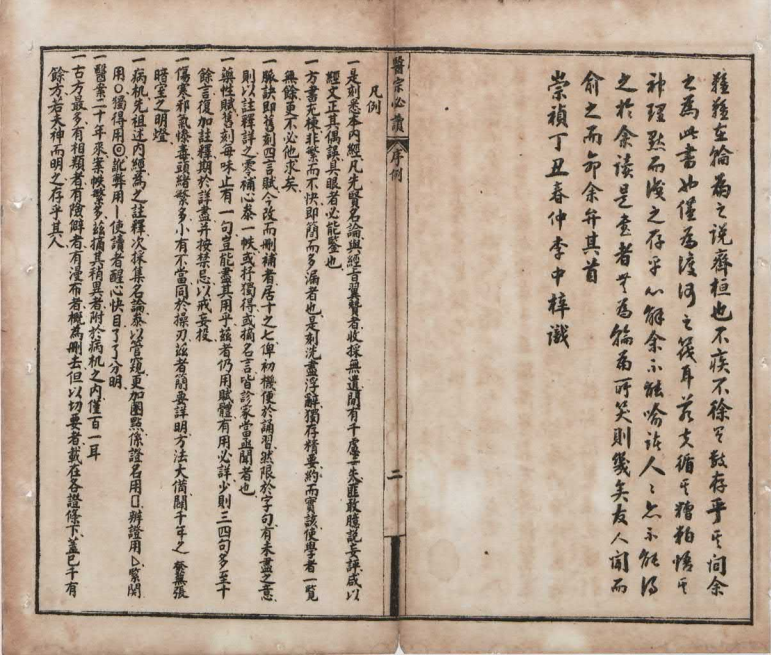 難難在輪扁之說齊桓也不疾不徐有數存乎其间余
之為此書也僅為渡河之筏耳若夫循其糟粕悟其
神理默而成之存乎心解余不能喻諸人人亦不能得
之於余讀是書者無為輪扁所笑則幾矣友人聞而
俞之而命余弁其首
崇禎丁丑春仲李中梓識
醫宗必讀
序例
二
凡例
一是刻悉本內經凡先賢名論與經旨翼贊者收採無遺間有千慮一失匪敢臆說妄評咸以
經文正其偶誤具眼者必能鑒也
一方書充棟非繁而不快即簡而多漏者也是刻洗盡浮辭獨存精要約而實該使學者一覽
無餘更不必他求矣
一脈訣即舊刻四言賦今改而刪補者居十之七俾初機便於誦習然限於字句有未盡之意
則以註釋詳之零補心參一帙或抒獨得或摘名言皆診家當與聞者也
一藥性賦舊刻每味止有一句豈能盡其用乎茲者仍用賦體有用必詳少則三四句多至十
餘言復加註釋期於詳盡并按禁忌以戒妄投
一傷寒邪氣慘毒頭緒繁多小有不當同於操刃茲者簡要詳明方法大備闢千年之蓁蕪張
暗室之明燈
一病机先祖述內經為之註釋次採集名論參以管窺更加圈點條證名用囗辨證用△緊關
用○獨得用◎訛弊用丨使讀者醒心快目了了分明
一醫案二十年來案帙繁多茲摘其稍異者附於病机之內僅百一耳
一古方最多有相類者有險僻者有漫布者概為刪去但以切要者載在各證條下蓋已千有
餘方若夫神而明之存乎其人